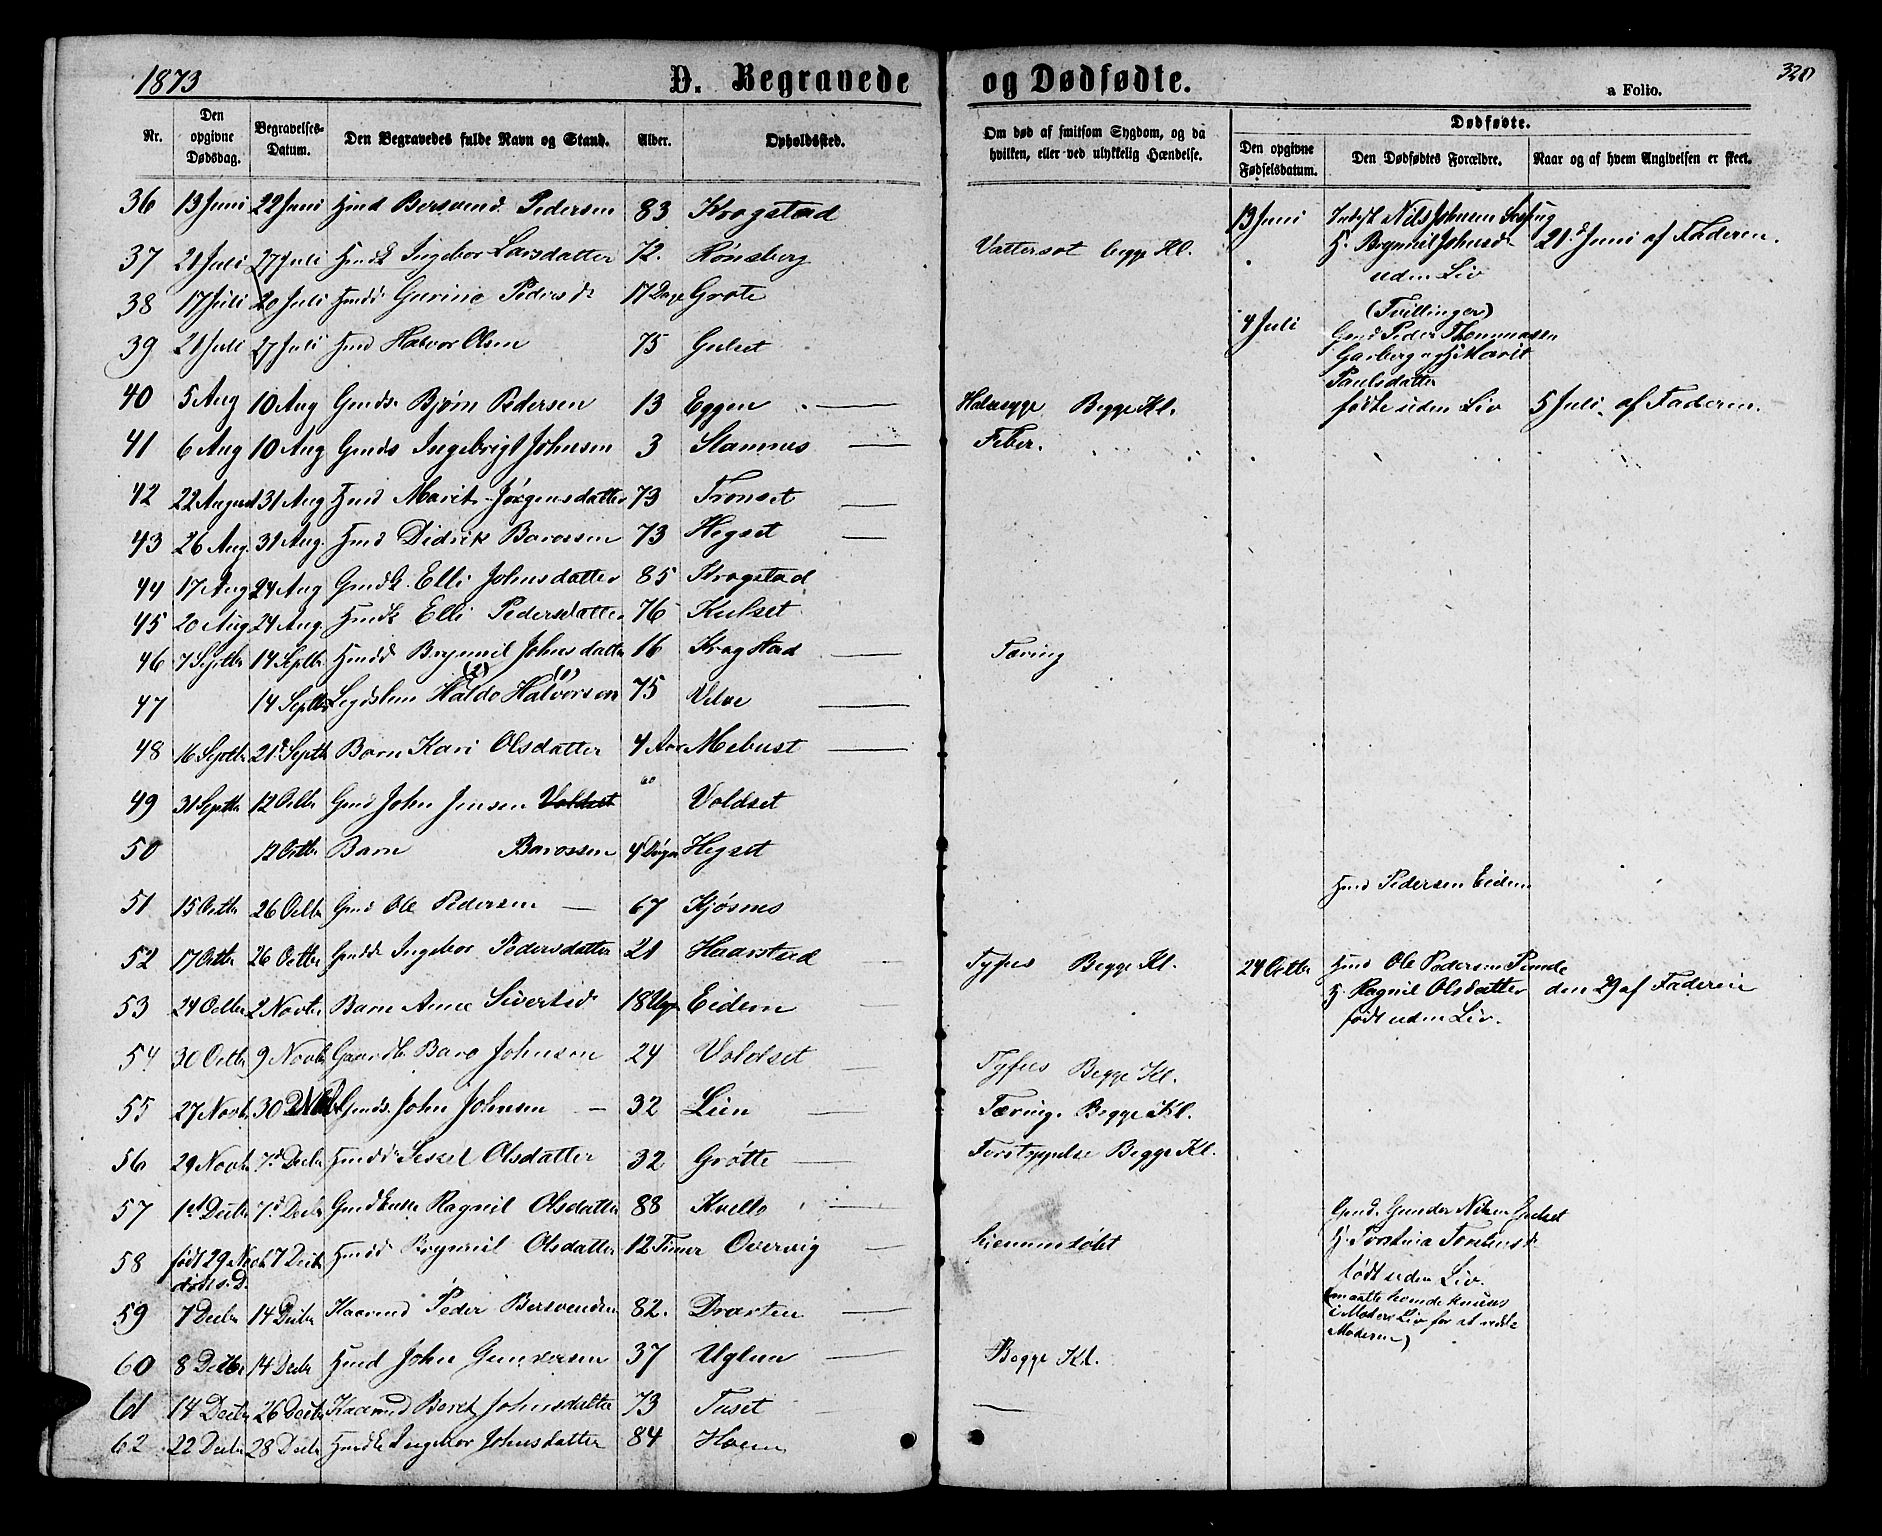 1873
D. Begravede og Dødfødte.
320
a Folio.
Nr.
Den opgivne Dødsdag.
Begravelses-Datum.
Den Begravedes fulde Navn og Stand.
Alder.
Opholdssted.
Om død af smitsom Sygdom, og da hvilken, eller ved ulykkelig Hændelse.
Dødfødte.
Den opgivne Fødselsdatum.
Den Dødfødtes Forældre.
Naar og af hvem Angivelsen er skeet.
36 13 Juni 22 Juni Hmd Bersvend Pedersen 83 Krogstad
37 21 Juli 27 Juli Hmdk Ingebor Larsdatter 72. Rønsberg Vattersot begge Kl.
38 17 Juli 20 Juli Hmdd Gurine Pedersdr 17 Dage Grøte
39 21 Juli 27 Juli Hmd Halvor Olsen 75 Gulset
40 5 Aug 10 Aug Gmds. Bjørn Pedersen 13 Eggen — Halssyge Begge Kl.
41 6 Aug 10 Aug Gmds Ingebrigt Johnsen 3 Stamnes — Feber.
42 22 August 31 Aug Hmd Marit Jørgensdatter 73 Tronset —
43 26 Aug. 31 Aug. Hmd Didrik Barossen 73 Hegset —
44 17 Aug 24 Aug Gmdk. Elli Johnsdatter 85 Krogstad
45 20 Aug 24 Aug Hmdk Elli Pedersdatter 76 Kulset
46 7 Septbr 14 Septbr Hmdd Brynnil Johnsdatter 16 Krogstad — Tæring
47 14 Septbr Legdslem Haldo Halvorsen 75 Velve —
48 16 Septbr 21d Septbr Barn Kari Olsdatter 4 Aar Mebust —
49 31 Septbr 12 Octbr Gmd John Jensen Voldset " Voldset
50 12 Octbr Barn Barossen 4 Døgn Hegset
51 15 Octbr 26 Octbr Gmd Ole Pedersen — 67 Kjøsnes
52 17 Octbr 26 Octbr Gmdd Ingebor Pedersdatter 21 Haarstad Tyfus Begge Kl.
53 24 Octbr 2 Novbr Barn Anne Sivertsd 18 Uger Eidem
54 30 Octbr 9 Novbr Gaardbr Baro Johnsen 24 Voldset — Tyfus Begge Kl.
55 27 Novb. 30 Novb Gmds. John Johnsen — 32 Lien — Tæring. Begge Kl.
56 29 Novb. 7d Decbr Hmdd Sessel Olsdatter 32 Grøtte — Forstoppelse Begge Kl.
57 1st Decbr 7d Decbr Gmdenke Ragnil Olsdatter 88 Kvello —
58 født 29 Nov død s. D. 7 Decb Hmdd Brynnil Olsdatter 12 Timer Overvig — hjemmedøbt
59 7 Decbr 14 Decbr Kaarmd Peder Bersvendsen 82. Draxten —
60 8 Decbr 14 Decbr Hmd John Gundersen 37 Uglem — Begge Kl.
61 14 Decbr 26 Decbr Kaarmd Beret Johnsdatter 73 Tuset —
62 22 Decbr 28 Decbr HmdE Ingebor Johnsdatter 84 Hoem
13 Juni
Nils Johnsen
H. Brynnil Johnsdr
uden Liv
21d Juni af Faderen.
4 Juli
(Tvillinger)
Gmd Peder Thommassen
Garberg og H Marit
Paulsdatter
fødte uden Liv
5 Juli. af Faderen.
Hmd Pedersen Eidem
24 Octbr
Hmd Ole Pedersen
H. Ragnil Olsdatter
født uden Liv.
den 29 af Faderen
Gmd. Gunder Nilsen Gulset
H.
født uden Liv.
(maatte
i Moders Liv for at redde
Moderen)